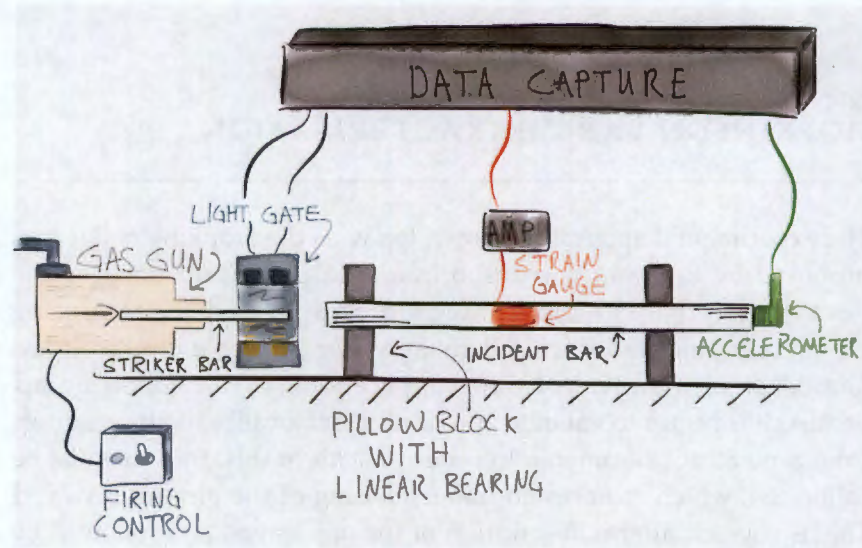 DATA CAPTURE
LIGHT GATE
GAS GUN
AMP
STRAIN
GAUGE
STRIKER BAR
INCIDENT BAR
ACCELEROMETER
PILLOW BLOCK
WITH
LINEAR BEARING
FIRING
CONTROL